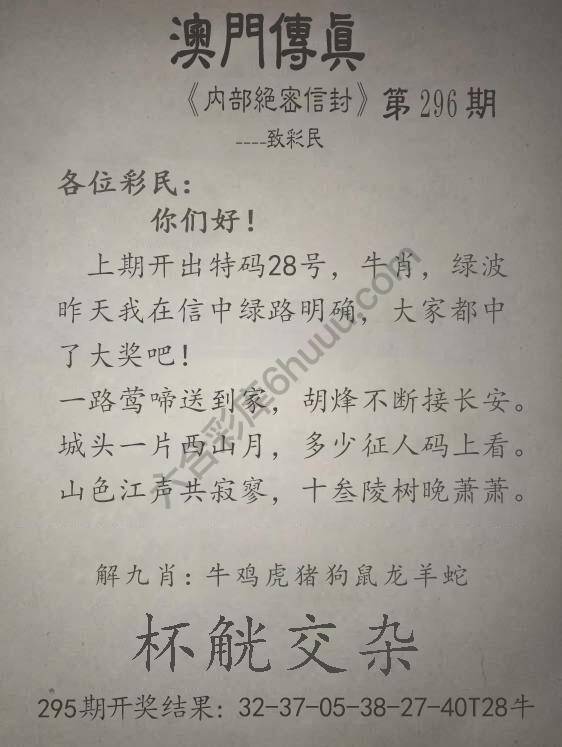 澳門傳真
《内部絕密信封》第296期
----致彩民
各位彩民：
你们好！
上期开出特码28号，牛肖，绿波
昨天我在信中绿路明确，大家都中
了大奖吧！
一路莺啼送到家，胡烽不断接长安。
城头一片西山月，多少征人码上看。
山色江声共寂寥，十叁陵树晚萧萧。
六合彩库6huuu.com
解九肖：牛鸡虎猪狗鼠龙羊蛇
杯觥交杂
295期开奖结果：32-37-05-38-27-40T28牛